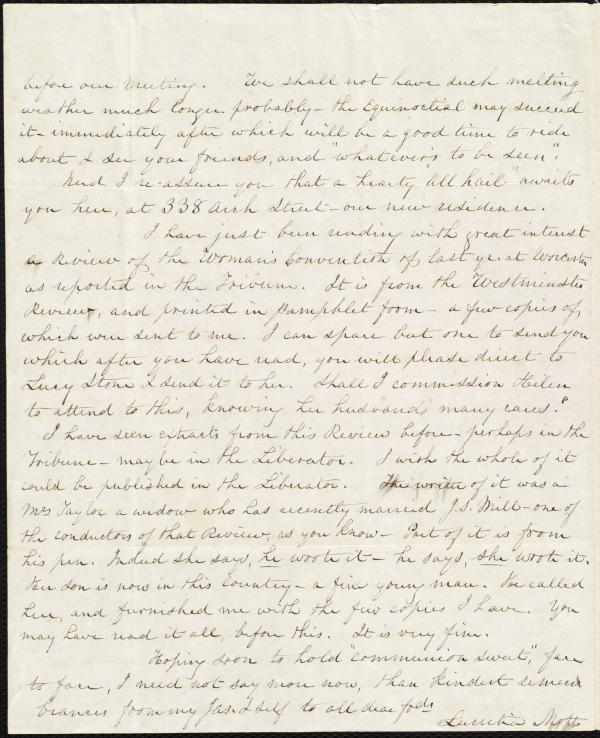 before our Meeting. We shall not have such melting
weather much longer probably – the Equinoctial may succeed
it – immediately after which will be a good time to ride
about & see your friends, and "whatever's to be seen".
Need I re-assure you that a hearty "All hail" awaits
you here, at 338 Arch Street – our new residence.
I have just been reading with great interest
a Review of the Woman's Convention of last yr. at Worcester
as reported in the Tribune. It is from the Westminster
Review, and printed in Pamphlet form – a few copies of
which were sent to me. I can spare but one to send you
which after you have read, you will please direct to
Lucy Stone & send it to her. Shall I commission Helen
to attend to this, knowing her husband's many cares?
I have seen extracts from this Review before – perhaps in the
Tribune – maybe in the Liberator. I wish the whole of it
could be published in the Liberator. The writer of it was a
Mrs Taylor a widow who has recently married J.S. Mill – one of
the conductors of that Review, as you know – Part of it is from
his pen. Indeed she says, he wrote it – he says, she wrote it.
Her son is now in this Country – a fine young man. He called
here, and furnished me with the few copies I have. You
may have read it all, before this. It is very fine.
Hoping soon to hold "communion sweet", face
to face, I need not say more now, than kindest remem
brances from my Jas. & self to all dear frds
Lucretia Mott